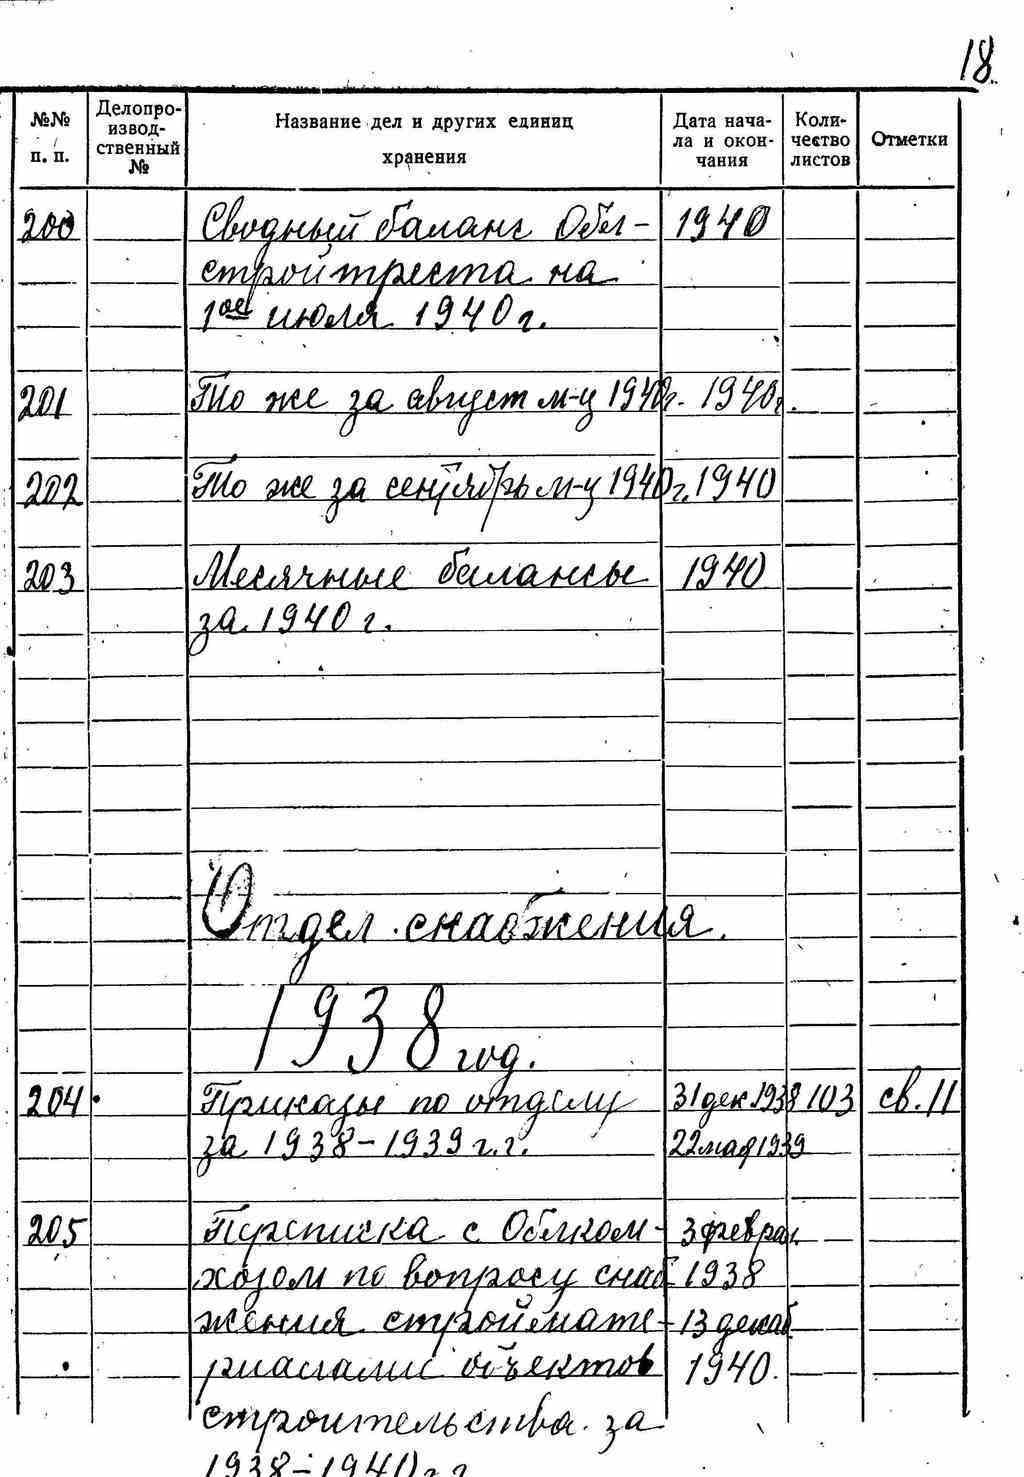 18.
№№ п. п. Делопроизводственный № Название дел и других единиц хранения Дата начала и окончания Количество листов Отметки
200 Сводный баланс Обл- 1940
стройтреста на
1ое июля 1940 г.
201 То же за август м-ц 1940г. 1940г.
202 То же за сентябрь м-ц 1940г. 1940
203 Месячные балансы 1940
за 1940 г.
Отдел снабжения.
1938 год.
204 Приказы по отделу 31 дек 1938 103 св. 11
за 1938-1939 г.г. 22 мая 1939
205 Переписка с Облком- 3 феврал.
хозом по вопросу снаб- 1938
жения строймате- 13 декаб
риалами объектов 1940.
строительства за
1938-1940 г.г.